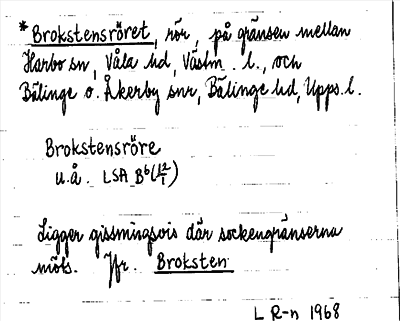 *Brokstensröret, rör, på gränsen mellan
Harbo sn, Våla hd, Västm. l., och
Bälinge o. Åkerby snr, Bälinge hd, Upps. l.
Brokstensröre
u.å. LSA B6(12/1)
Ligger gissningsvis där sockengränserna
möts. Jfr. Broksten
L R-n 1968